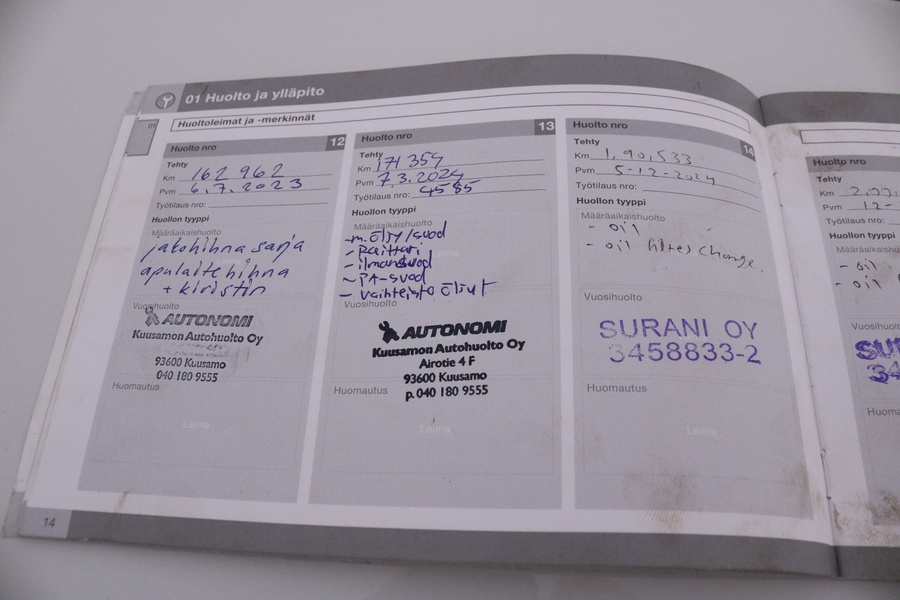 01 Huolto ja ylläpito
01
Huoltoleimat ja -merkinnät
Huolto nro 12
Tehty
Km 162 962
Pvm 6.7.2023
Työtilaus nro:
Huollon tyyppi
Määräaikaishuolto
jakohihna sarja
apulaitehihna
+ kiristin
Vuosihuolto
AUTONOMI
Kuusamon Autohuolto Oy
93600 Kuusamo
040 180 9555
Huomautus
Leima
Huolto nro 13
Tehty
Km 171 354
Pvm 7.3.2024
Työtilaus nro: 4585
Huollon tyyppi
Määräaikaishuolto
-m.Öljy/suod
- Raittari
- ilmansuod
- PA-suod
- vaihteisto Öljyt
Vuosihuolto
AUTONOMI
Kuusamon Autohuolto Oy
Airotie 4 F
93600 Kuusamo
p. 040 180 9555
Huomautus
Leima
Huolto nro 14
Tehty
Km 1,90,533
Pvm 5-12-2024
Työtilaus nro:
Huollon tyyppi
Määräaikaishuolto
- oil
- oil filter change.
Vuosihuolto
SURANI OY
3458833-2
Huomautus
Leima
Huolto nro
Tehty
Km
Pvm 12-
Työtilaus nro:
Huollon tyyppi
- oil
- oil
14